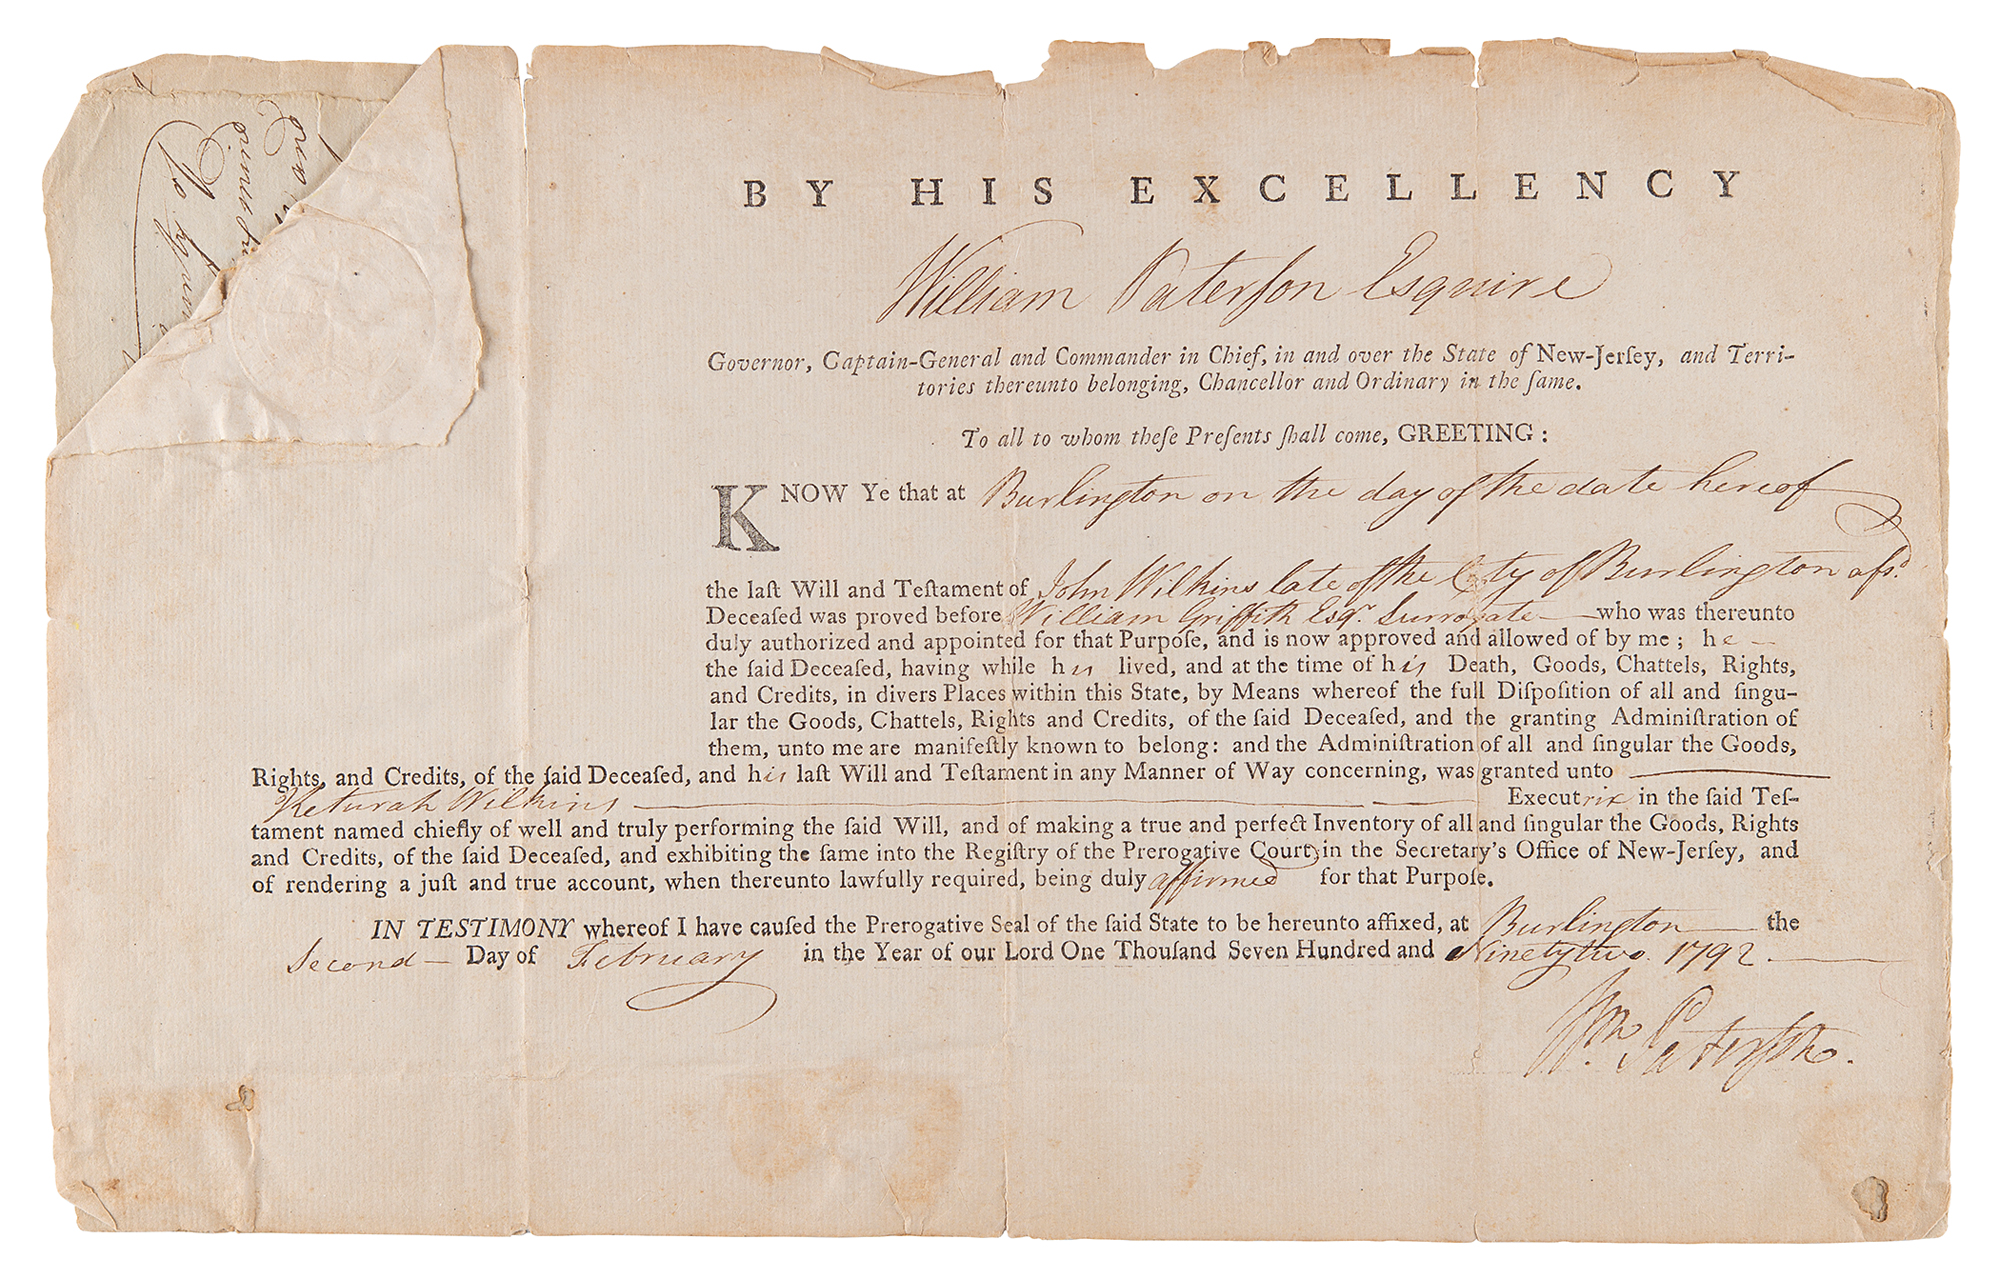 BY HIS EXCELLENCY
William Paterſon Esquire
Governor, Captain-General and Commander in Chief, in and over the State of New-Jerſey, and Terri-
tories thereunto belonging, Chancellor and Ordinary in the ſame.
To all to whom theſe Preſents ſhall come, GREETING:
KNOW Ye that at Burlington on the day of the date hereof
the laſt Will and Teſtament of John Wilkins late of the City of Burlington afsd
Deceaſed was proved before William Griffith Esqr. Surrogate — who was thereunto
duly authorized and appointed for that Purpoſe, and is now approved and allowed of by me; he —
the ſaid Deceaſed, having while his lived, and at the time of his Death, Goods, Chattels, Rights,
and Credits, in divers Places within this State, by Means whereof the full Diſpoſition of all and ſingu-
lar the Goods, Chattels, Rights and Credits, of the ſaid Deceaſed, and the granting Adminiſtration of
them, unto me are manifeſtly known to belong: and the Adminiſtration of all and ſingular the Goods,
Rights, and Credits, of the ſaid Deceaſed, and his laſt Will and Teſtament in any Manner of Way concerning, was granted unto —
Keturah Wilkins — Executrix in the ſaid Teſ-
tament named chiefly of well and truly performing the ſaid Will, and of making a true and perfect Inventory of all and ſingular the Goods, Rights
and Credits, of the ſaid Deceaſed, and exhibiting the ſame into the Regiſtry of the Prerogative Court, in the Secretary's Office of New-Jerſey, and
of rendering a juſt and true account, when thereunto lawfully required, being duly affirmed for that Purpoſe.
IN TESTIMONY whereof I have cauſed the Prerogative Seal of the ſaid State to be hereunto affixed, at Burlington — the
Second — Day of February in the Year of our Lord One Thouſand Seven Hundred and Ninety two. 1792 —
Wm. Paterſon.